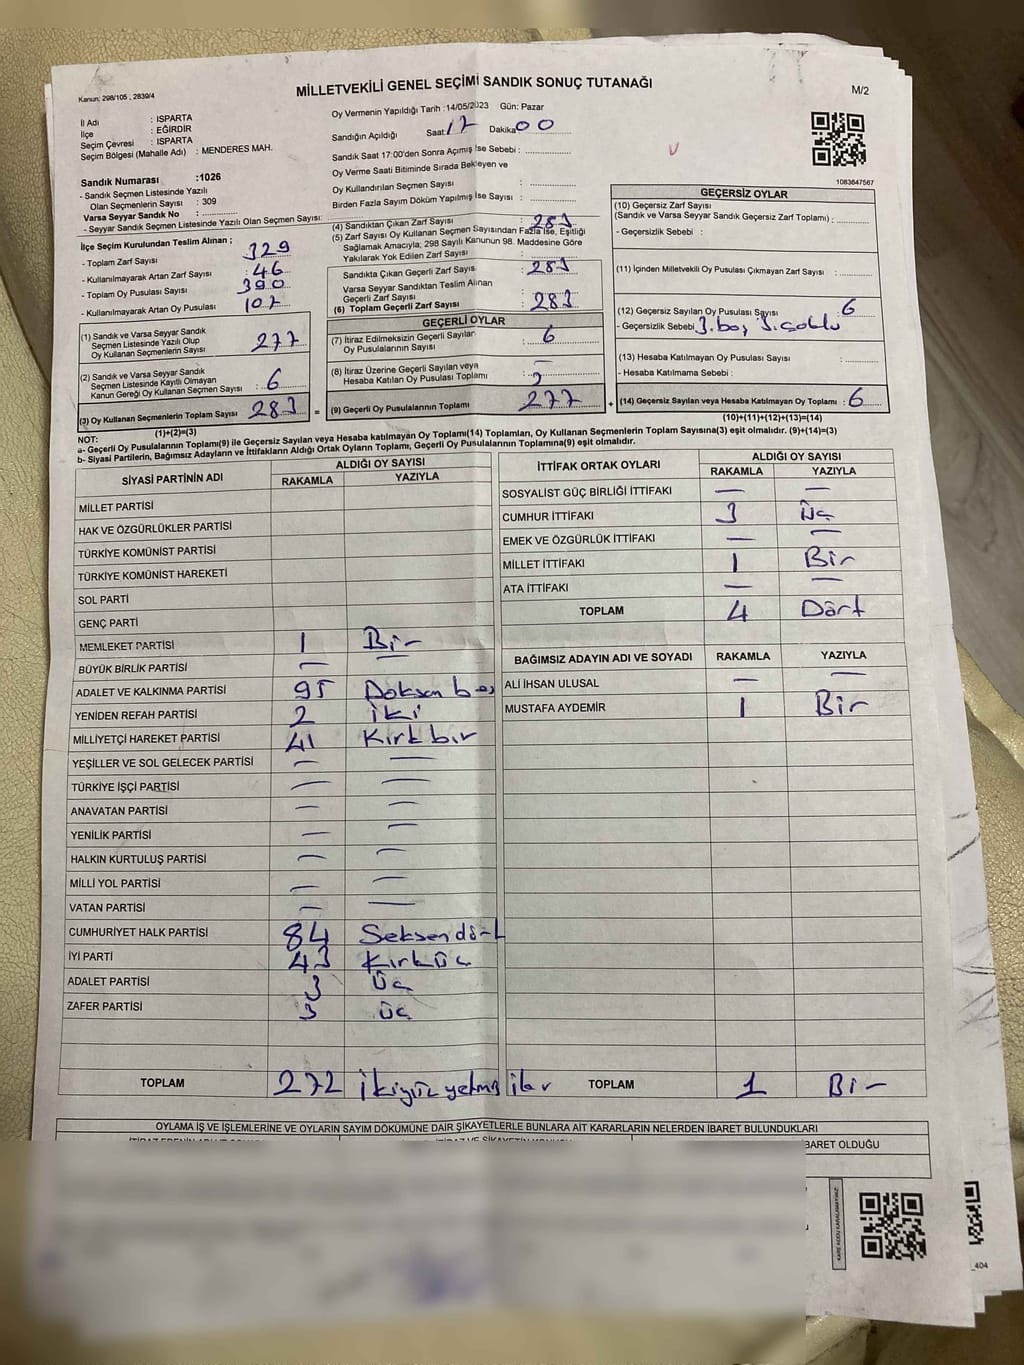 Kanun; 298/105 , 2839/4
MİLLETVEKİLİ GENEL SEÇİMİ SANDIK SONUÇ TUTANAĞI
M/2
İl Adı : ISPARTA
İlçe : EĞİRDİR
Seçim Çevresi : ISPARTA
Seçim Bölgesi (Mahalle Adı) : MENDERES MAH.
Oy Vermenin Yapıldığı Tarih :14/05/2023 Gün: Pazar
Sandığın Açıldığı Saat 17 Dakika 00
Sandık Saat 17:00'den Sonra Açımış İse Sebebi :
Oy Verme Saati Bitiminde Sırada Bekleyen ve
Oy Kullandırılan Seçmen Sayısı :
Birden Fazla Sayım Döküm Yapılmış İse Sayısı :
Sandık Numarası :1026
- Sandık Seçmen Listesinde Yazılı
Olan Seçmenlerin Sayısı : 309
Varsa Seyyar Sandık No :
- Seyyar Sandık Seçmen Listesinde Yazılı Olan Seçmen Sayısı:
İlçe Seçim Kurulundan Teslim Alınan ;
- Toplam Zarf Sayısı : 329
- Kullanılmayarak Artan Zarf Sayısı : 46
- Toplam Oy Pusulası Sayısı : 390
- Kullanılmayarak Artan Oy Pusulası : 107
(1) Sandık ve Varsa Seyyar Sandık
Seçmen Listesinde Yazılı Olup
Oy Kullanan Seçmenlerin Sayısı : 277
(2) Sandık ve Varsa Seyyar Sandık
Seçmen Listesinde Kayıtlı Olmayan
Kanun Gereği Oy Kullanan Seçmen Sayısı : 6
(3) Oy Kullanan Seçmenlerin Toplam Sayısı : 283
(1)+(2)=(3)
(4) Sandıktan Çıkan Zarf Sayısı : 283
(5) Zarf Sayısı Oy Kullanan Seçmen Sayısından Fazla İse, Eşitliği
Sağlamak Amacıyla; 298 Sayılı Kanunun 98. Maddesine Göre
Yakılarak Yok Edilen Zarf Sayısı :
Sandıkta Çıkan Geçerli Zarf Sayısı : 283
Varsa Seyyar Sandıktan Teslim Alınan
Geçerli Zarf Sayısı :
(6) Toplam Geçerli Zarf Sayısı : 283
GEÇERLİ OYLAR
(7) İtiraz Edilmeksizin Geçerli Sayılan
Oy Pusulalarının Sayısı : 6
(8) İtiraz Üzerine Geçerli Sayılan veya
Hesaba Katılan Oy Pusulası Toplamı :
(9) Geçerli Oy Pusulalarının Toplamı : 277
1083647567
GEÇERSİZ OYLAR
(10) Geçersiz Zarf Sayısı
(Sandık ve Varsa Seyyar Sandık Geçersiz Zarf Toplamı) :
- Geçersizlik Sebebi :
(11) İçinden Milletvekili Oy Pusulası Çıkmayan Zarf Sayısı :
(12) Geçersiz Sayılan Oy Pusulası Sayısı : 6
- Geçersizlik Sebebi 3. boş 3. çoklu
(13) Hesaba Katılmayan Oy Pusulası Sayısı :
- Hesaba Katılmama Sebebi :
(14) Geçersiz Sayılan veya Hesaba Katılmayan Oy Toplamı : 6
(10)+(11)+(12)+(13)=(14)
NOT:
a- Geçerli Oy Pusulalarının Toplamı(9) ile Geçersiz Sayılan veya Hesaba katılmayan Oy Toplamı(14) Toplamları, Oy Kullanan Seçmenlerin Toplam Sayısına(3) eşit olmalıdır. (9)+(14)=(3)
b- Siyasi Partilerin, Bağımsız Adayların ve İttifakların Aldığı Ortak Oyların Toplamı, Geçerli Oy Pusulalarının Toplamına(9) eşit olmalıdır.
SİYASİ PARTİNİN ADI ALDIĞI OY SAYISI
RAKAMLA YAZIYLA
MİLLET PARTİSİ
HAK VE ÖZGÜRLÜKLER PARTİSİ
TÜRKİYE KOMÜNİST PARTİSİ
TÜRKİYE KOMÜNİST HAREKETİ
SOL PARTİ
GENÇ PARTİ
MEMLEKET PARTİSİ 1 Bir
BÜYÜK BİRLİK PARTİSİ —
ADALET VE KALKINMA PARTİSİ 95 Doksan beş
YENİDEN REFAH PARTİSİ 2 iki
MİLLİYETÇİ HAREKET PARTİSİ 41 Kırk bir
YEŞİLLER VE SOL GELECEK PARTİSİ — —
TÜRKİYE İŞÇİ PARTİSİ — —
ANAVATAN PARTİSİ — —
YENİLİK PARTİSİ — —
HALKIN KURTULUŞ PARTİSİ — —
MİLLİ YOL PARTİSİ — —
VATAN PARTİSİ — —
CUMHURİYET HALK PARTİSİ 84 Seksen dört
İYİ PARTİ 43 Kırküç
ADALET PARTİSİ 3 Üç
ZAFER PARTİSİ 3 Üç
TOPLAM 272 İkiyüz yetmiş iki
İTTİFAK ORTAK OYLARI ALDIĞI OY SAYISI
RAKAMLA YAZIYLA
SOSYALİST GÜÇ BİRLİĞİ İTTİFAKI — —
CUMHUR İTTİFAKI 3 Üç
EMEK VE ÖZGÜRLÜK İTTİFAKI — —
MİLLET İTTİFAKI 1 Bir
ATA İTTİFAKI — —
TOPLAM 4 Dört
BAĞIMSIZ ADAYIN ADI VE SOYADI RAKAMLA YAZIYLA
ALİ İHSAN ULUSAL — —
MUSTAFA AYDEMİR 1 Bir
TOPLAM 1 Bir
OYLAMA İŞ VE İŞLEMLERİNE VE OYLARIN SAYIM DÖKÜMÜNE DAİR ŞİKAYETLERLE BUNLARA AİT KARARLARIN NELERDEN İBARET BULUNDUKLARI
BARET OLDUĞU
_404